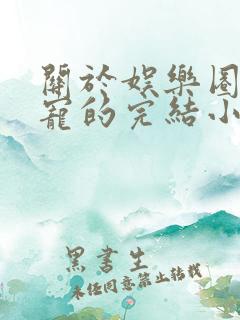 關於娛樂圈
寵的完結小
黑書生
未經同意禁止轉載